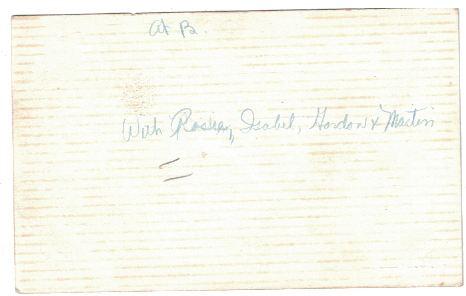 At B
With Isabel, Gordon & Martin